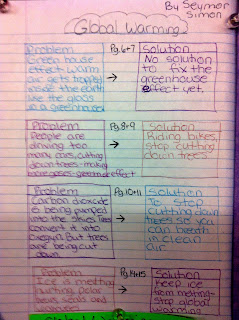 By Seymor
Simon
Global Warming
Problem
Green house
effect- warm
air gets trapped
inside the earth
like the glass
in a greenhouse
Pg.6+7
Solution
No solution
to fix the
greenhouse
effect yet.
Problem
People are
driving too
many cars, cutting
down trees- making
more gases- greenhouse effect
Pg.8+9
Solution
Riding bikes,
stop cutting
down trees
Problem
Carbon dioxide
is being pumped
into the air. Trees
convert it into
oxegun. But trees
are being cut
down.
Pg.10+11
Solution
To stop
cutting down
trees so you
can breath
in clean
air
Problem
Ice is melting
hurting Polar
bears, seals and
Pg.14+15
Solution
Keep ice
from melting-
stop global
warming